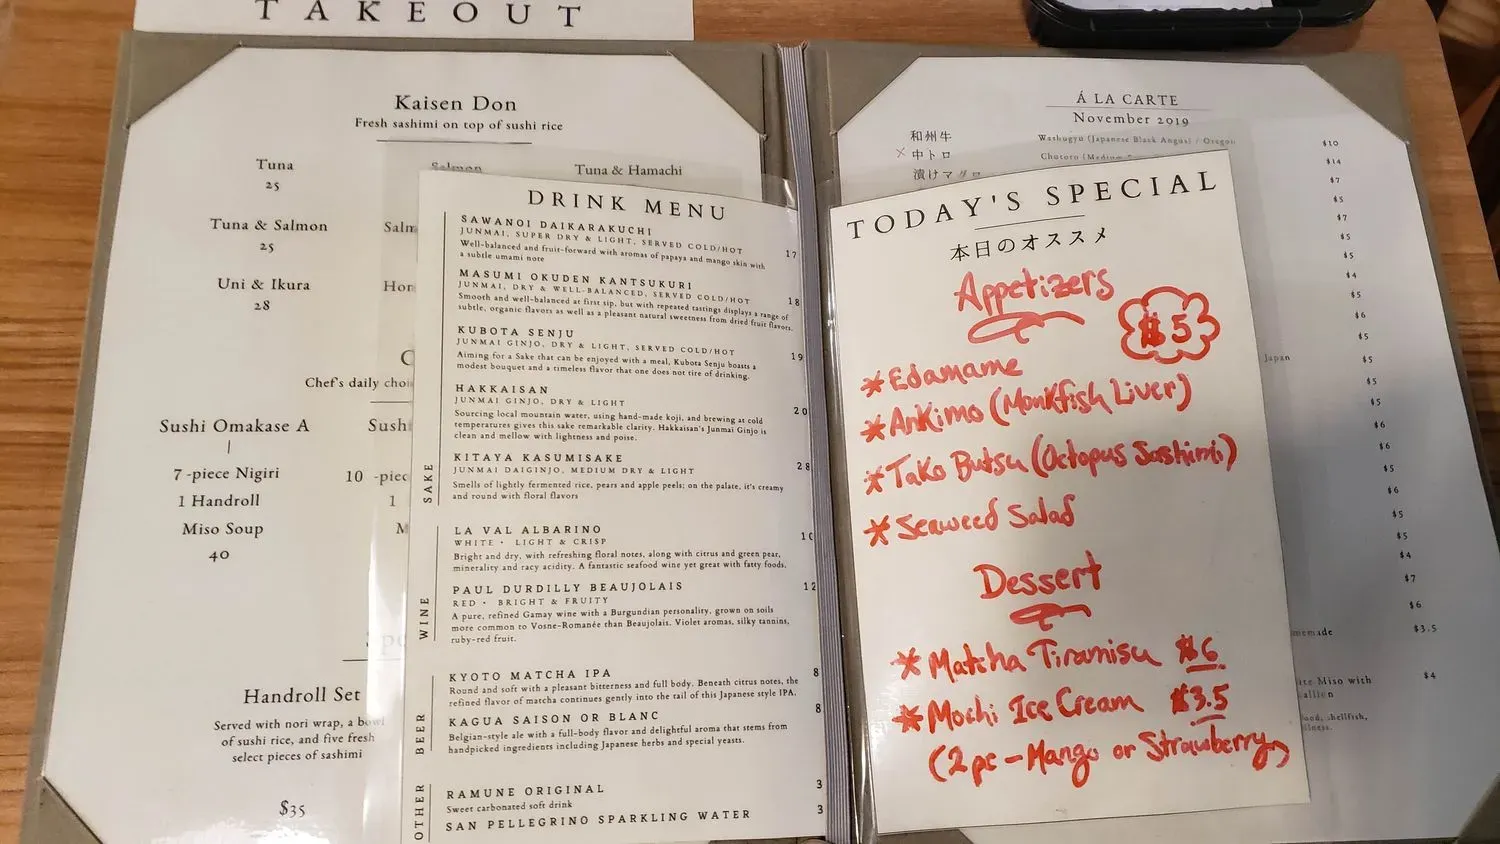 TAKEOUT
Kaisen Don
Fresh sashimi on top of sushi rice
Tuna
25
Salmon
Tuna & Hamachi
Tuna & Salmon
25
Uni & Ikura
28
Chef's daily
Sushi Omakase A
7 -piece Nigiri
1 Handroll
Miso Soup
40
10
1
Handroll Set
Served with nori wrap, a bowl
of sushi rice, and five fresh
select pieces of sashimi
$35
DRINK MENU
SAKE
SAWANOI DAIKARAKUCHI
17
JUNMAI, SUPER DRY & LIGHT, SERVED COLD/HOT
Well-balanced and fruit-forward with aromas of papaya and mango skin with
a subtle umami note
MASUMI OKUDEN KANTSUKURI
18
JUNMAI, DRY & WELL-BALANCED, SERVED COLD/HOT
Smooth and well-balanced at first sip, but with repeated tastings displays a range of
subtle, organic flavors as well as a pleasant natural sweetness from dried fruit flavors.
KUBOTA SENJU
19
JUNMAI GINJO, DRY & LIGHT, SERVED COLD/HOT
Aiming for a Sake that can be enjoyed with a meal, Kubota Senju boasts a
modest bouquet and a timeless flavor that one does not tire of drinking.
HAKKAISAN
20
JUNMAI GINJO, DRY & LIGHT
Sourcing local mountain water, using hand-made koji, and brewing at cold
temperatures gives this sake remarkable clarity. Hakkaisan's Junmai Ginjo is
clean and mellow with lightness and poise.
KITAYA KASUMISAKE
28
JUNMAI DAIGINJO, MEDIUM DRY & LIGHT
Smells of lightly fermented rice, pears and apple peels; on the palate, it's creamy
and round with floral flavors
WINE
LA VAL ALBARINO
10
WHITE · LIGHT & CRISP
Bright and dry, with refreshing floral notes, along with citrus and green pear,
minerality and racy acidity. A fantastic seafood wine yet great with fatty foods.
PAUL DURDILLY BEAUJOLAIS
12
RED · BRIGHT & FRUITY
A pure, refined Gamay wine with a Burgundian personality, grown on soils
more common to Vosne-Romanée than Beaujolais. Violet aromas, silky tannins,
ruby-red fruit.
BEER
KYOTO MATCHA IPA
8
Round and soft with a pleasant bitterness and full body. Beneath citrus notes, the
refined flavor of matcha continues gently into the tail of this Japanese style IPA.
KAGUA SAISON OR BLANC
8
Belgian-style ale with a full-body flavor and delightful aroma that stems from
handpicked ingredients including Japanese herbs and special yeasts.
OTHER
RAMUNE ORIGINAL
3
Sweet carbonated soft drink
SAN PELLEGRINO SPARKLING WATER
3
Á LA CARTE
November 2019
和州牛
Washugyu (Japanese Black Angus) / Oregon
$10
中トロ
Chutoro
$14
漬けマグロ
$7
$5
$7
$5
$5
$4
$5
$6
Japan
$5
$5
$5
$6
$6
$5
$6
$5
$5
$4
$7
$6
$3.5
Miso with
$4
TODAY'S SPECIAL
本日のオススメ
Appetizers
$5
*Edamame
*Ankimo (Monkfish Liver)
*Tako Butsu (Octopus Sashimi)
*Seaweed Salad
Dessert
*Matcha Tiramisu $6
*Mochi Ice Cream $3.5
(2pc - Mango or Strawberry)